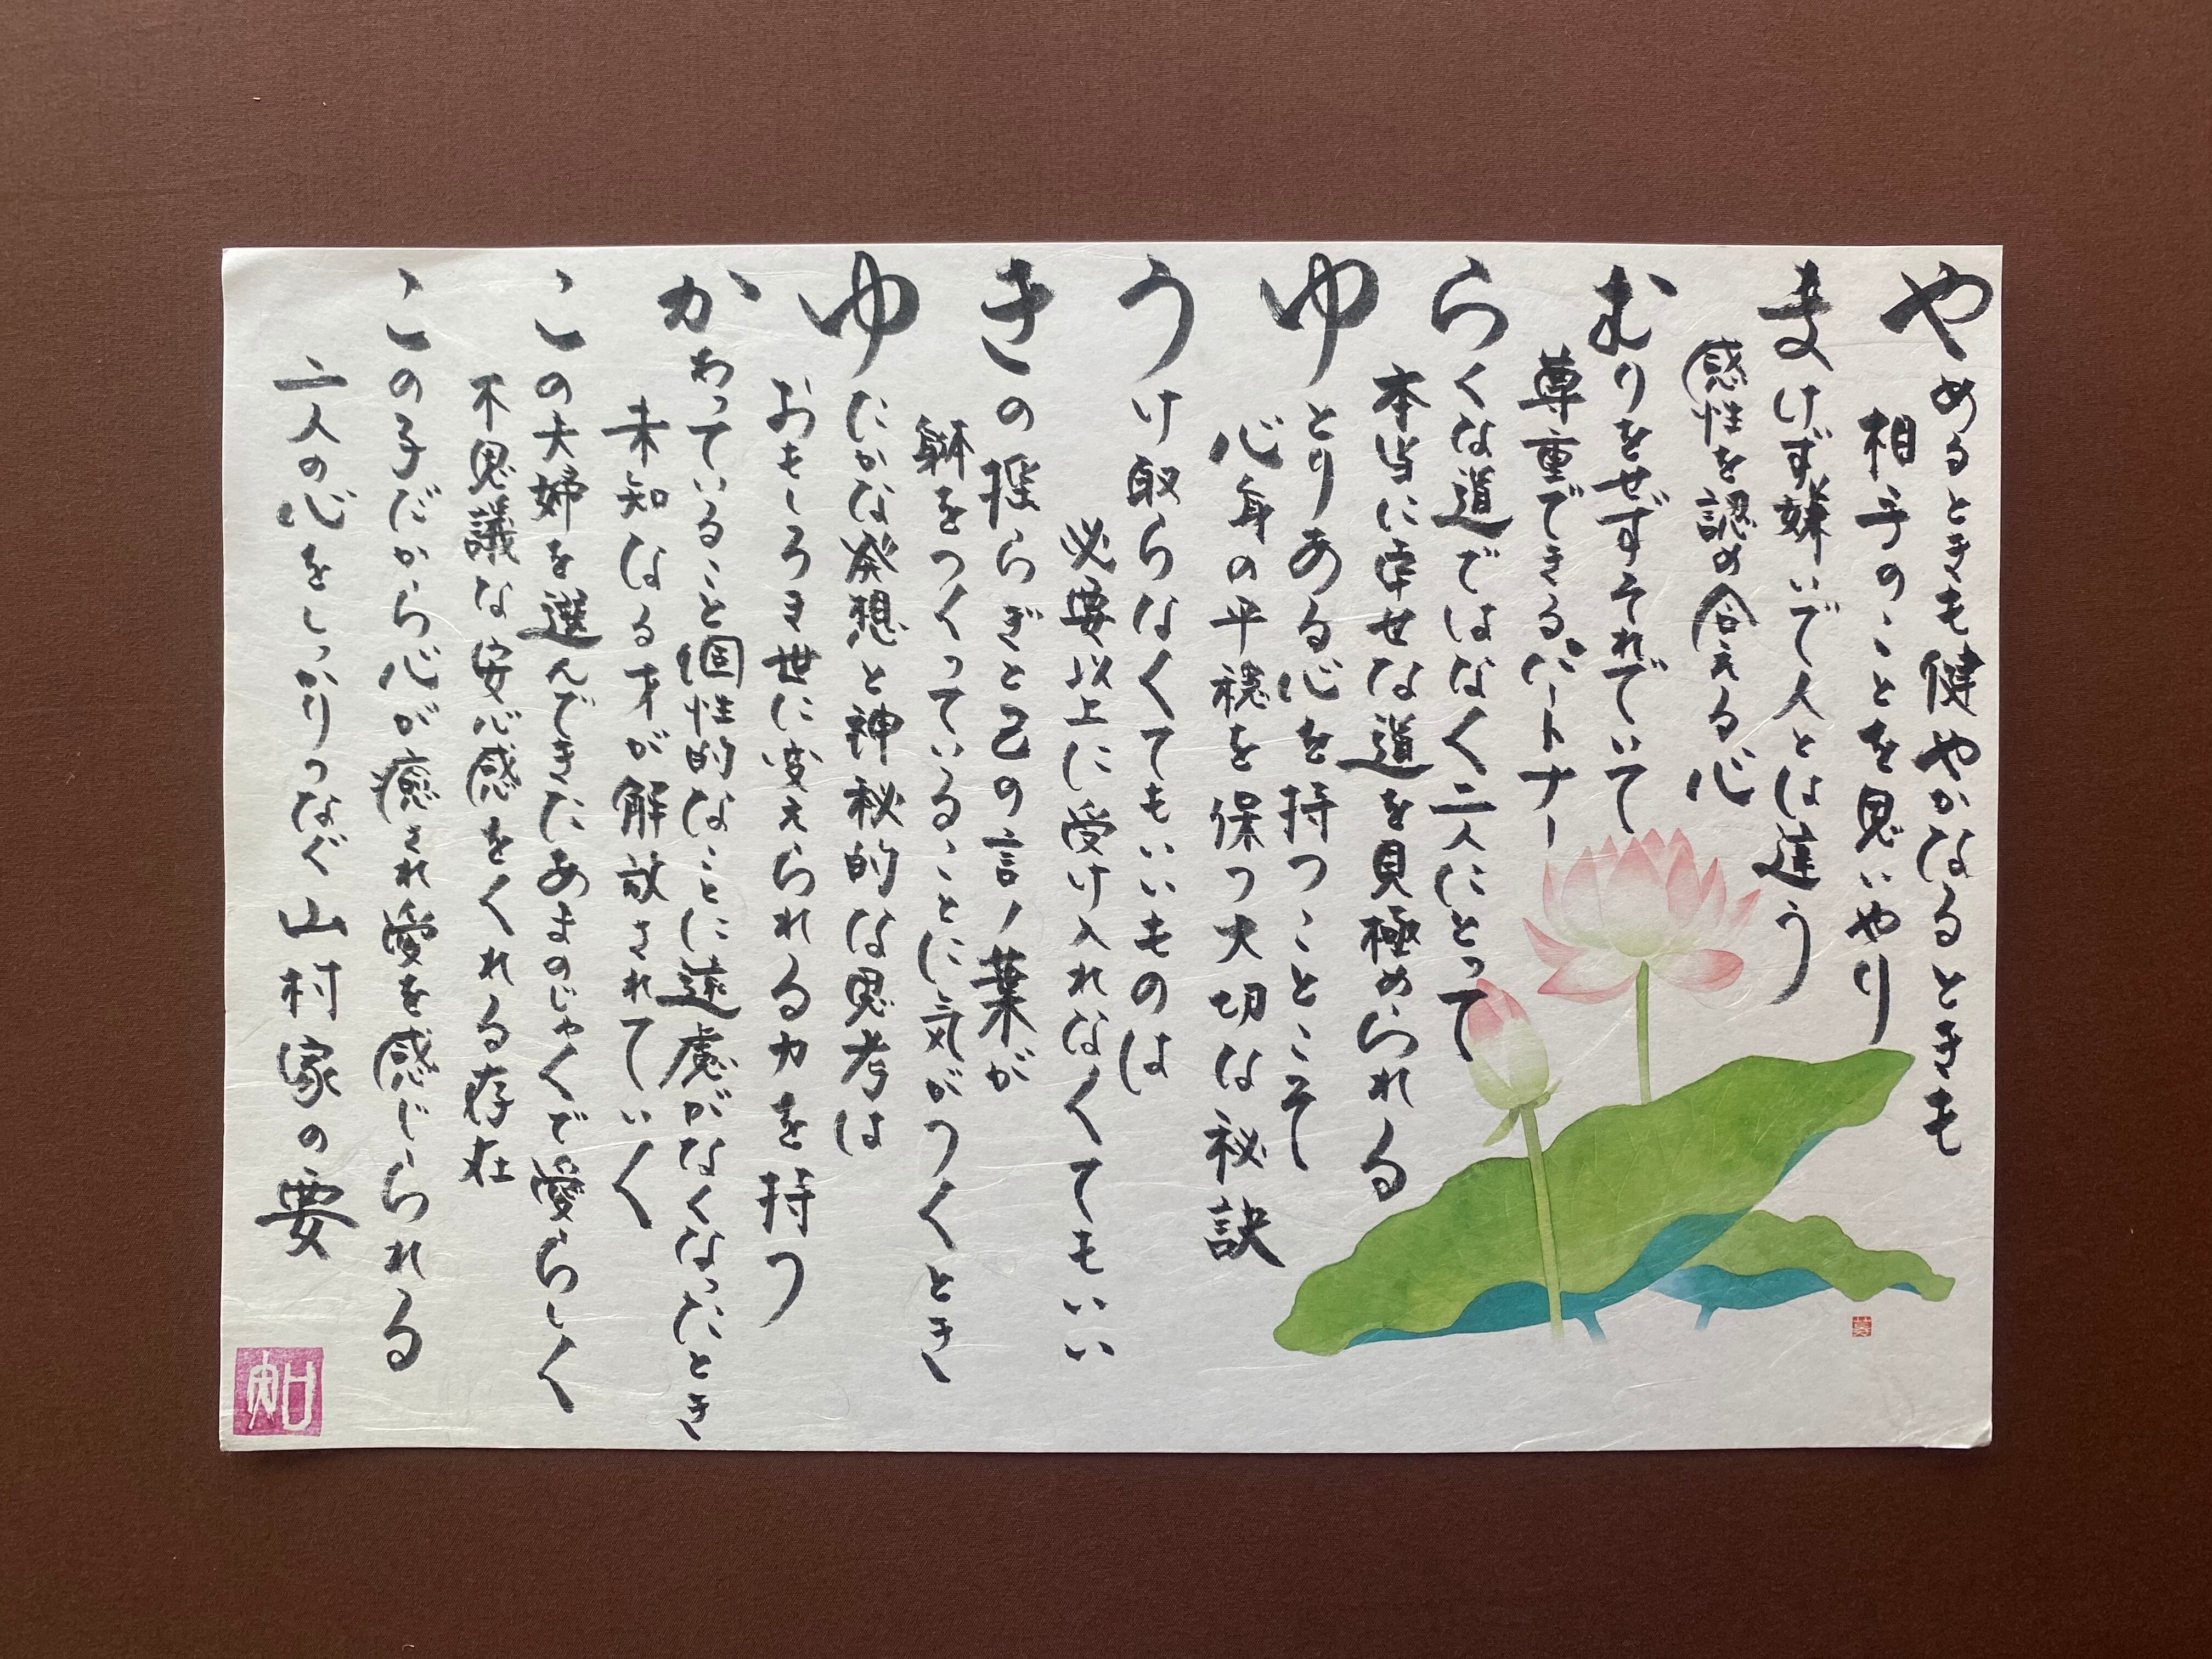 やめるときも健やかなるときも
相手のことを思いやり
まけず嫌いで人とは違う
感性を認め合える心
むりをせずそれでいて
尊重できるパートナー
らくな道ではなく二人にとって
本当に幸せな道を見極められる
ゆとりある心を持つことこそ
心身の平穏を保つ大切な秘訣
うけ取らなくてもいいものは
必要以上に受け入れなくてもいい
きの揺らぎと己の言ノ葉が
躰をつくっていることに気がつくとき
ゆたかな発想と神秘的な思考は
おもしろき世に変えられる力を持つ
かわっていること個性的なことに遠慮がなくなったとき
未知なる才が解放されていく
この夫婦を選んできたあまのじゃくで愛らしく
不思議な安心感をくれる存在
この子だから心が癒され愛を感じられる
二人の心をしっかりつなぐ 山村家の要